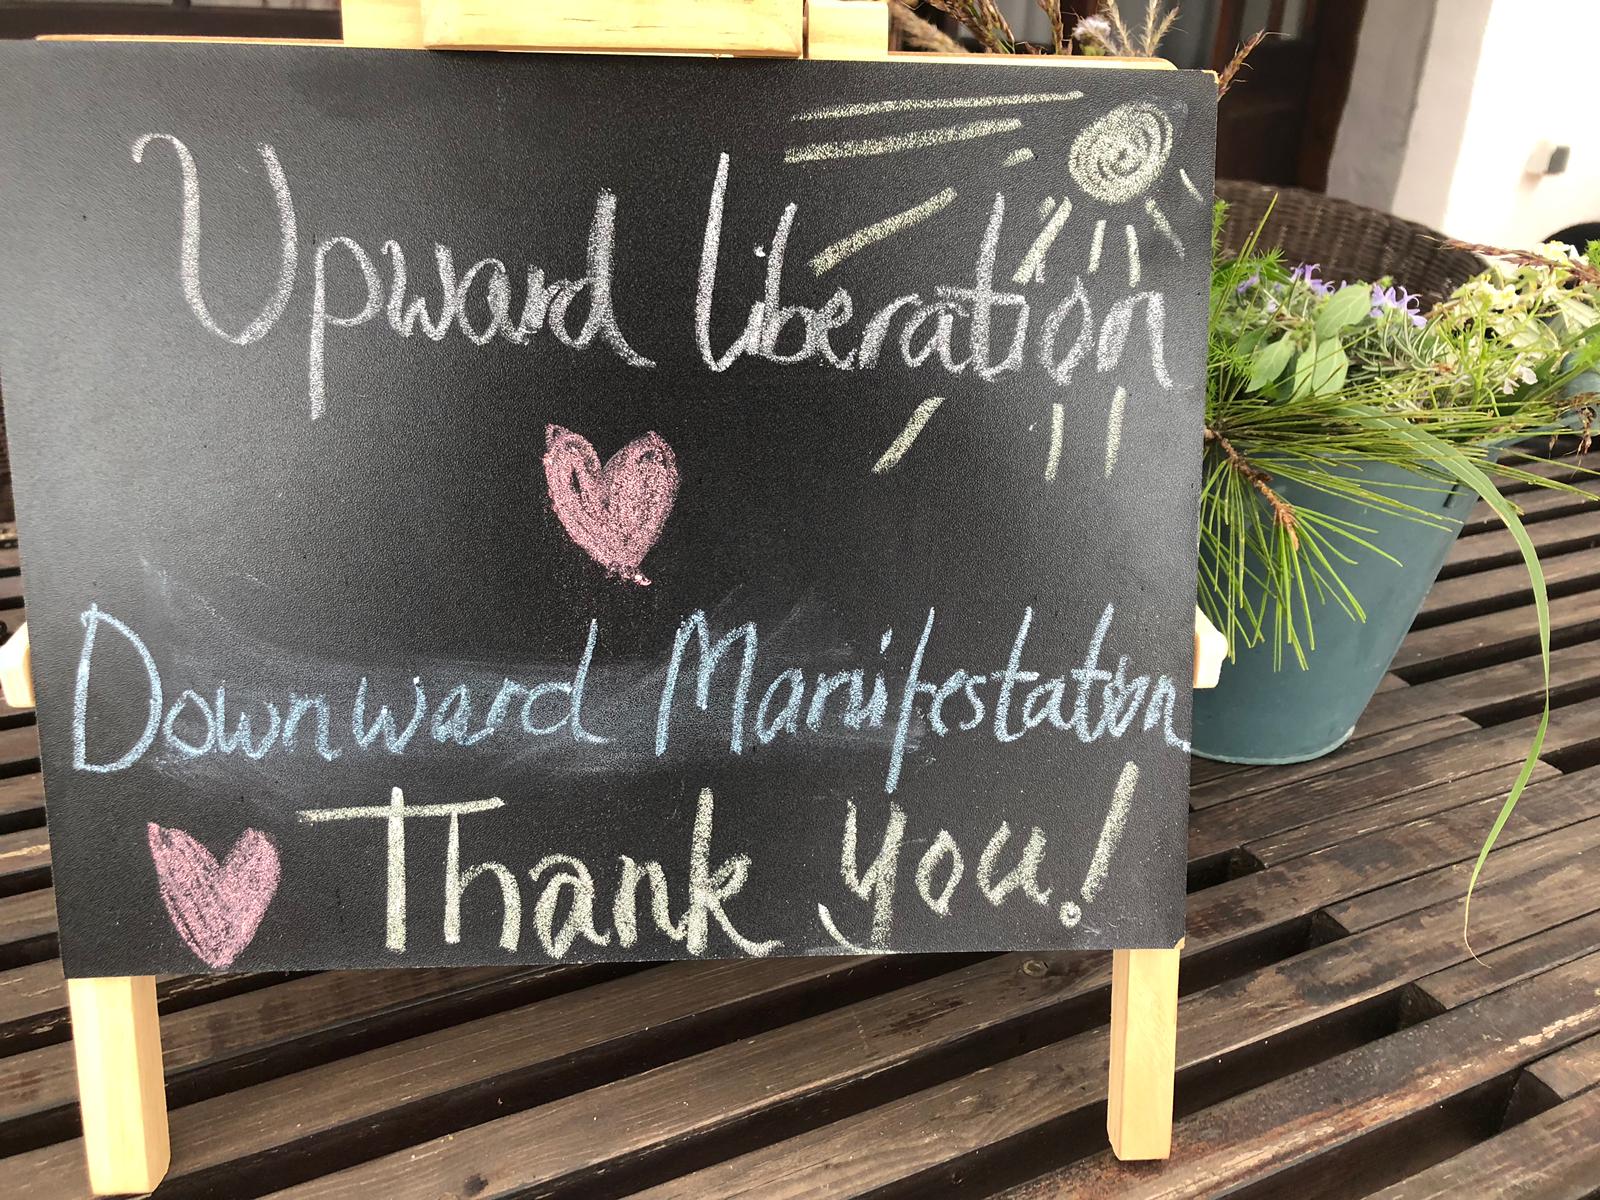 Upward liberation
Downward Manifestation
Thank you!